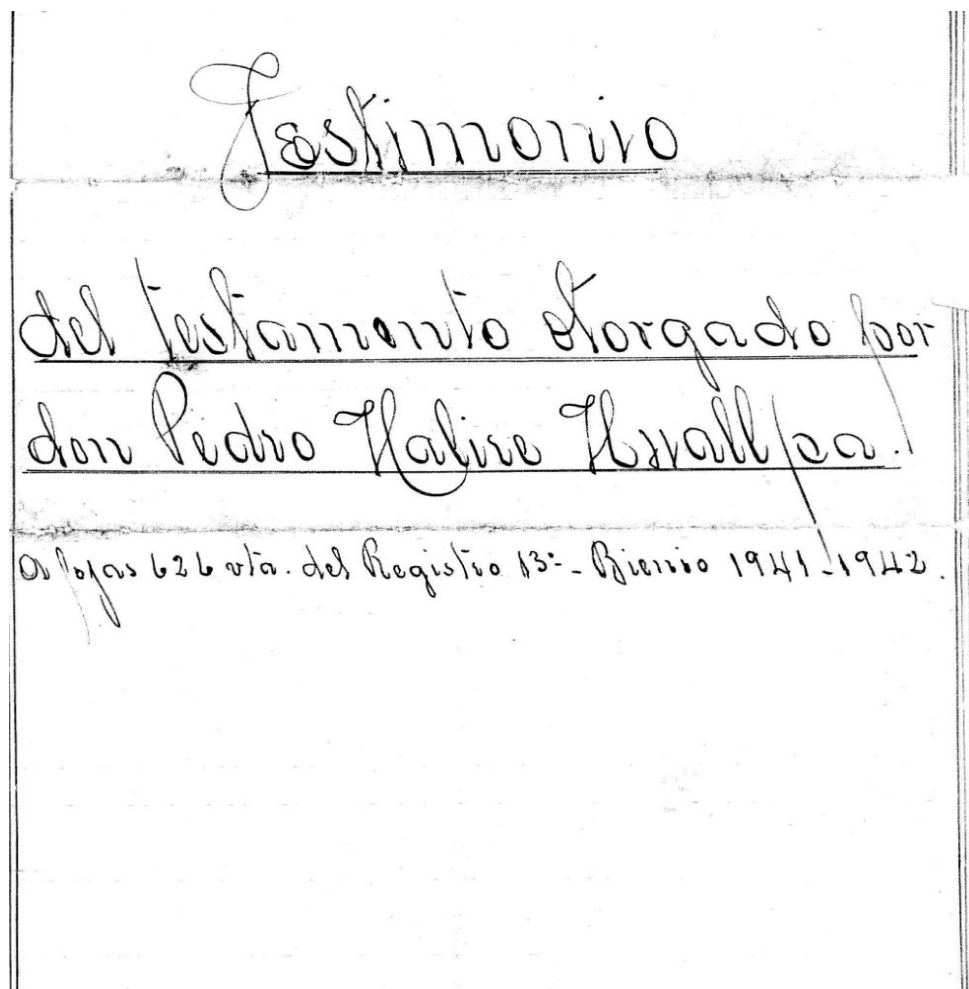 Testimonio
del testamento otorgado por
don Pedro Halire Huallpa.
a fojas 626 vta. del Registro 13º - Bienio 1941-1942.